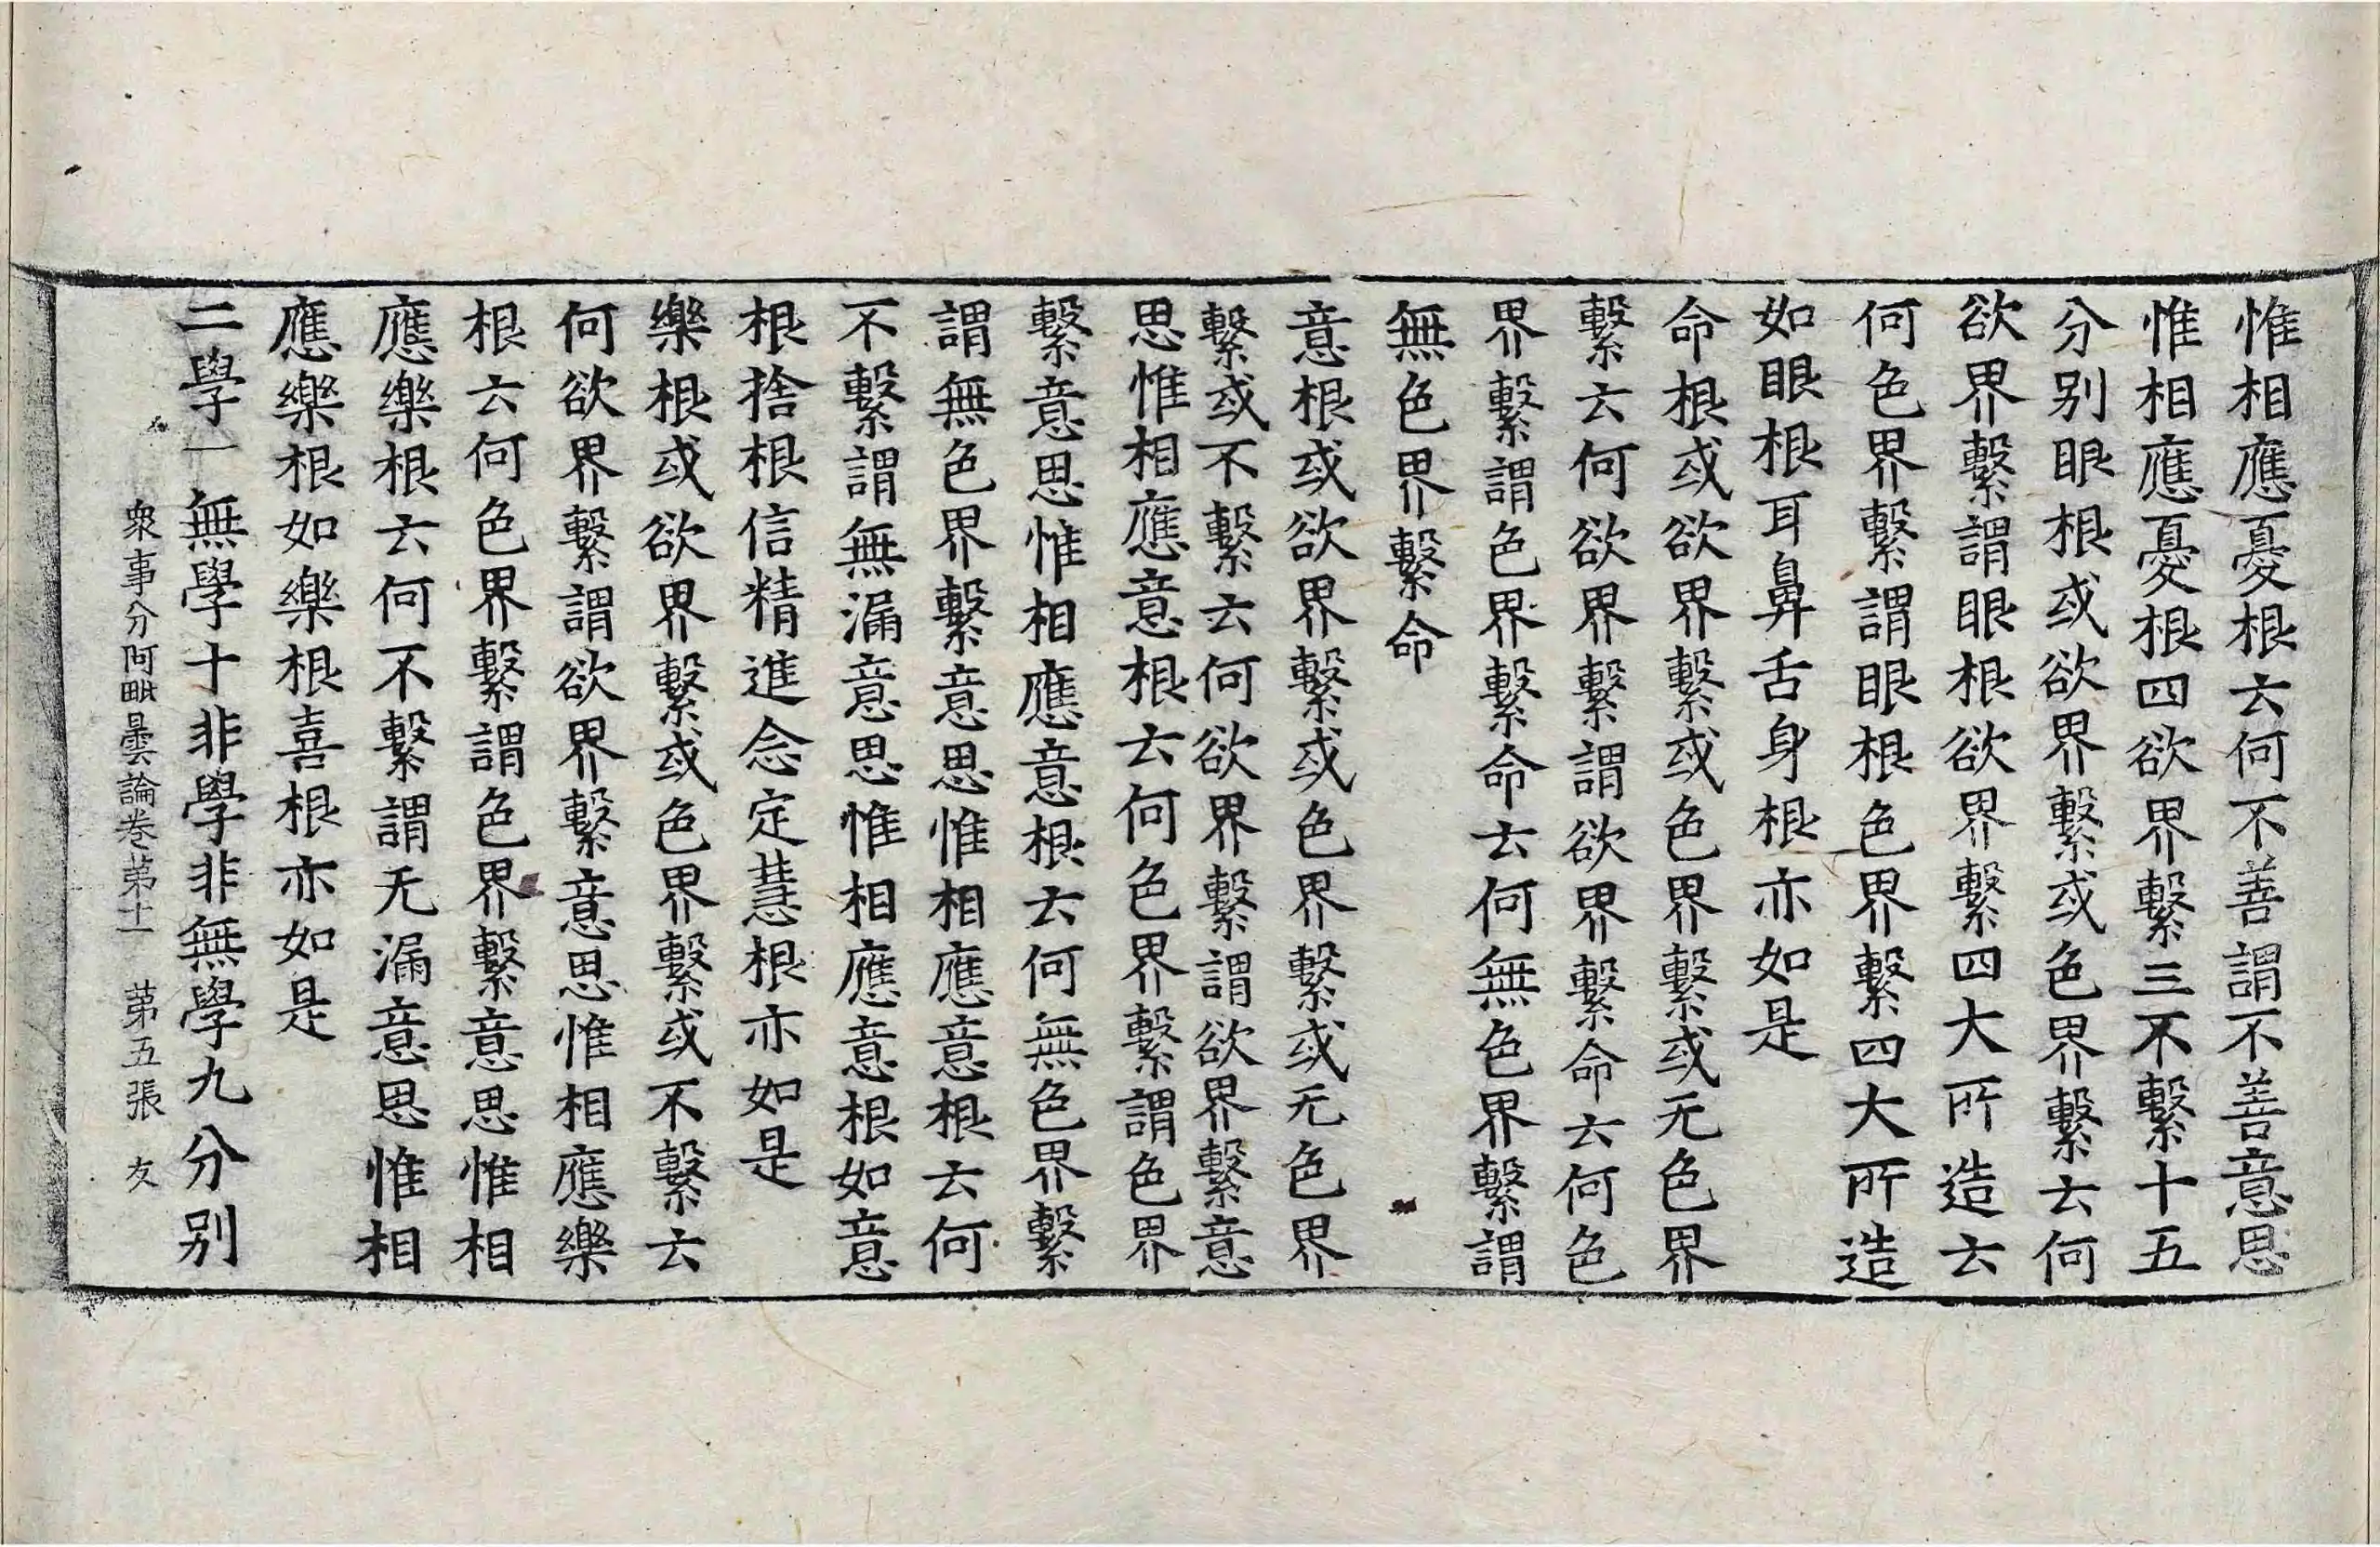 惟相應憂根云何不善謂不善意思
惟相應憂根四欲界繫三不繫十五
分别眼根或欲界繫或色界繫云何
欲界繫謂眼根欲界繫四大所造云
何色界繫謂眼根色界繫四大所造
如眼根耳鼻舌身根亦如是
命根或欲界繫或色界繫或无色界
繫云何欲界繫謂欲界繫命云何色
界繫謂色界繫命云何無色界繫謂
無色界繫命
意根或欲界繫或色界繫或无色界
繫或不繫云何欲界繫謂欲界繫意
思惟相應意根云何色界繫謂色界
繫意思惟相應意根云何無色界繫
謂無色界繫意思惟相應意根云何
不繫謂無漏意思惟相應意根如意
根捨根信精進念定慧根亦如是
樂根或欲界繫或色界繫或不繫云
何欲界繫謂欲界繫意思惟相應樂
根云何色界繫謂色界繫意思惟相
應樂根云何不繫謂无漏意思惟相
應樂根如樂根喜根亦如是
二學一無學十非學非無學九分别
衆事分阿毗曇論卷第十一 第五張 友